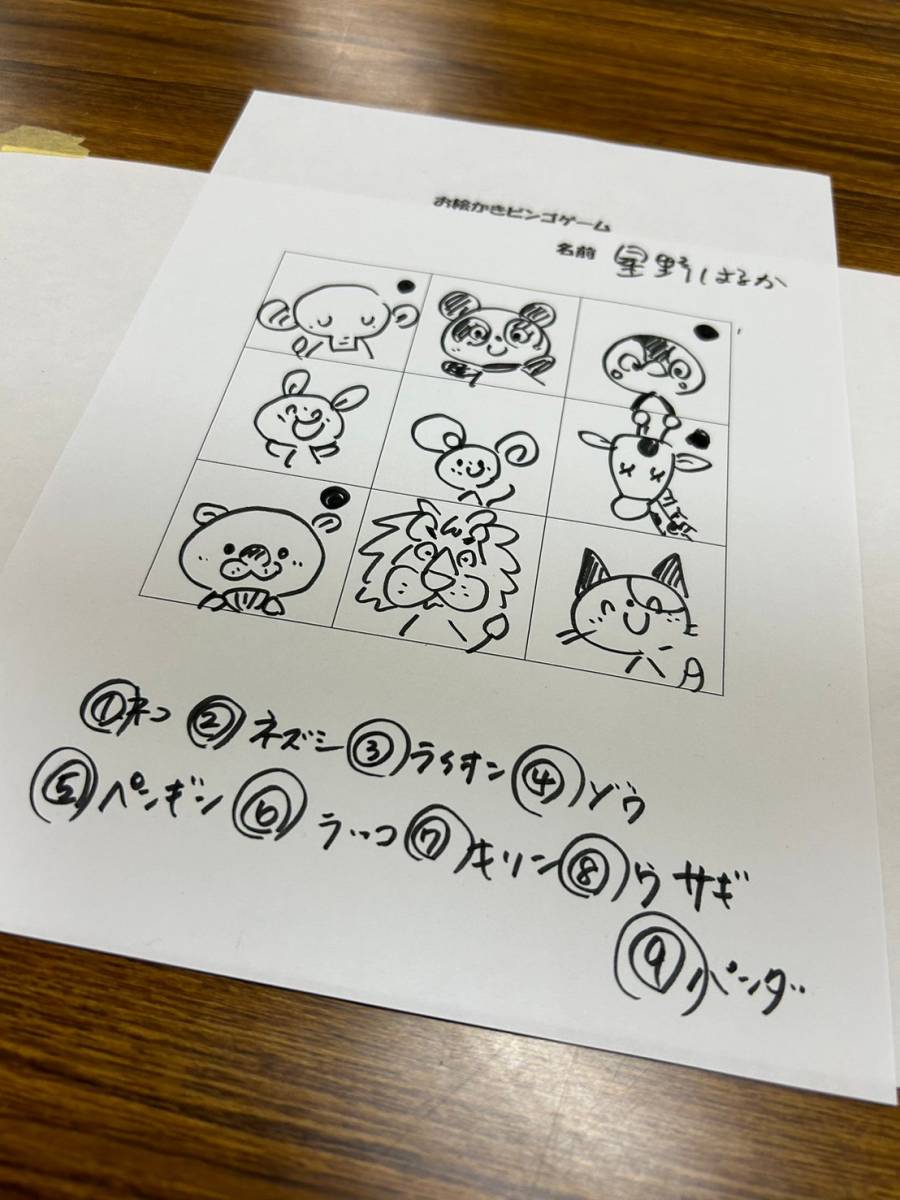 お絵かきビンゴゲーム
名前 星野はるか
①ネコ ②ネズミ ③ライオン ④ゾウ
⑤ペンギン ⑥ラッコ ⑦キリン ⑧ウサギ
⑨パンダ